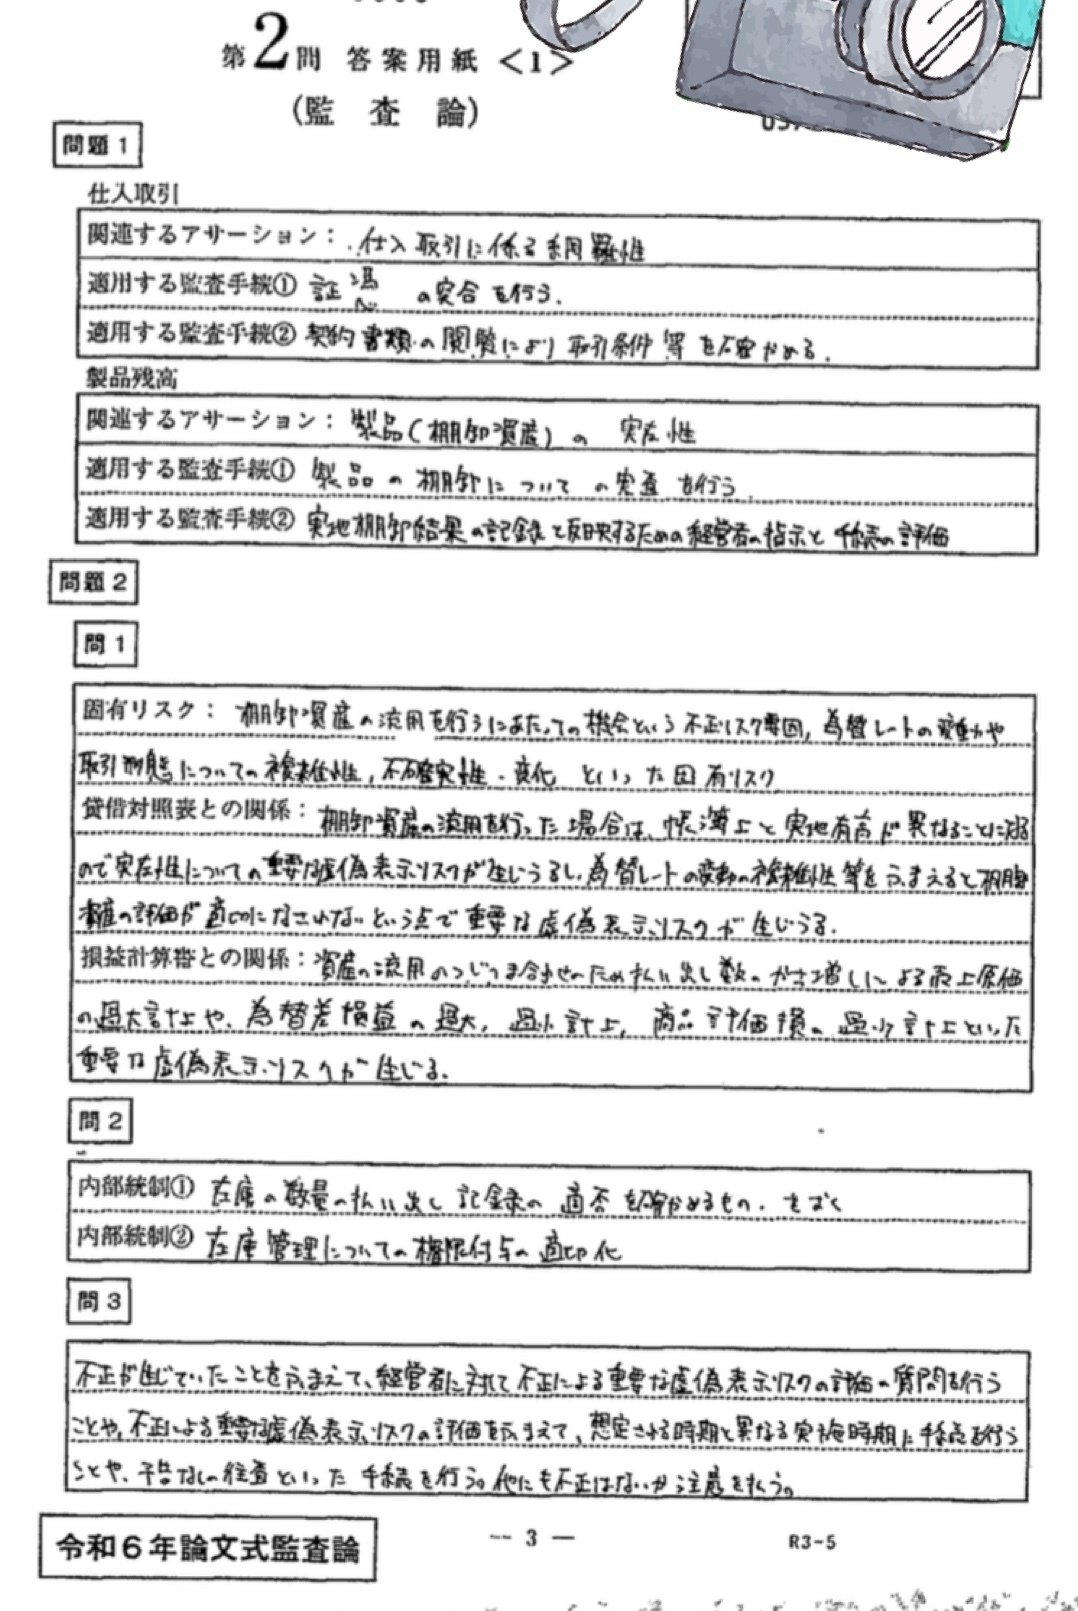 第2問 答案用紙 <1>
(監査論)
問題1
仕入取引
関連するアサーション：仕入取引に係る網羅性
適用する監査手続① 証憑の突合を行う.
適用する監査手続② 契約書類の閲覧により取引条件等を確かめる.
製品残高
関連するアサーション：製品(棚卸資産)の 実在性
適用する監査手続① 製品の棚卸についての実査を行う.
適用する監査手続② 実地棚卸結果の記録と反映するための経営者の指示と手続の評価
問題2
問1
固有リスク：棚卸資産の流用を行うにあたっての機会という不正リスク要因, 為替レートの変動や
取引形態についての複雑性, 不確実性・変化 といった固有リスク
貸借対照表との関係：棚卸資産の流用を行った場合は、帳簿上と実地有高が異なることに
ので実在性についての重要な虚偽表示リスクが生じうるし、為替レートの変動の複雑性等をふまえると棚卸
資産の評価が適切になされないという点で重要な虚偽表示リスクが生じうる.
損益計算書との関係：資産の流用のつじつま合わせのため払い出し数のかさ増しによる売上原価
の過大計上や、為替差損益の過大, 過少計上, 商品評価損の過少計上といった
重要な虚偽表示リスクが生じる.
問2
内部統制① 在庫の数量の払い出し記録の適否を確かめるもの.
内部統制② 在庫管理についての権限付与の適切化
問3
不正が生じていたことをふまえて、経営者に対して不正による重要な虚偽表示リスクの評価の質問を行う
ことや, 不正による重要な虚偽表示リスクの評価をふまえて、想定される時期と異なる実施時期に手続を行う
ことや、予告なしの往査といった手続を行う。他にも不正はないか注意を払う。
令和6年論文式監査論
— 3 —
R3-5